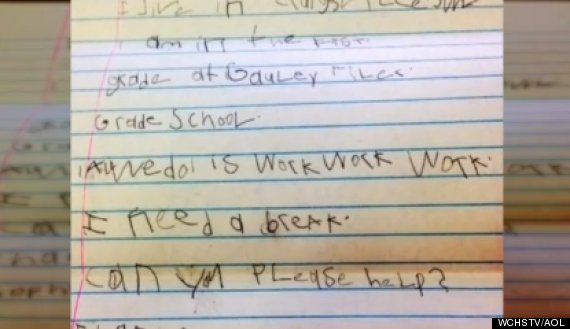 I live in
I am in the first
grade at Gauley River
Grade School.
All we do is work work work.
I need a break.
Can you please help?
WCHSTV/AOL